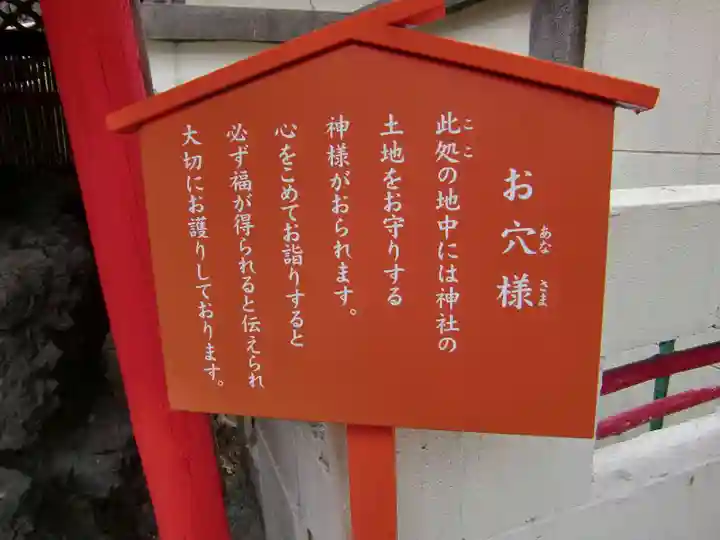 お穴様
あな
さま
此処の地中には神社の
ここ
土地をお守りする
神様がおられます。
心をこめてお詣りすると
必ず福が得られると伝えられ
大切にお護りしております。